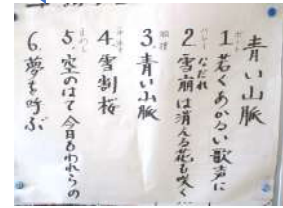 青い山脈
1. 若くあかるい歌声に
2. 雪崩は消える花も咲く
なだれ
3. 青い山脈
4. 雪割桜
5. 空のはて今日もわれらの
6. 夢を呼ぶ